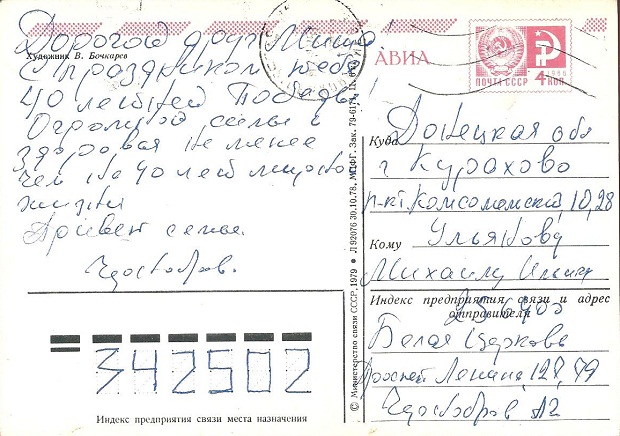 Художник В. Бочкарев
Дорогой друг Миша
С праздником тебя
40 летией Победы
Огромной силы и
здоровая не менее
чем на 40 лет мирной
жизни
Привет семье.
Чистобров.
АВИА
ПОЧТА СССР
4 КОП
1966
Куда Донецкая обл
г Курахово
п-кт. Комсомольский 10, 28
Кому Ульянову
Михаилу
Индекс предприятия связи и адрес
отправителя
256400
Белая Церковь
Проспект Ленина, 128, 79
342502
Индекс предприятия связи места назначения
© Министерство связи СССР, 1979 ● Л 92076 30.10.78. МПФГ. Зак. 79-6171.